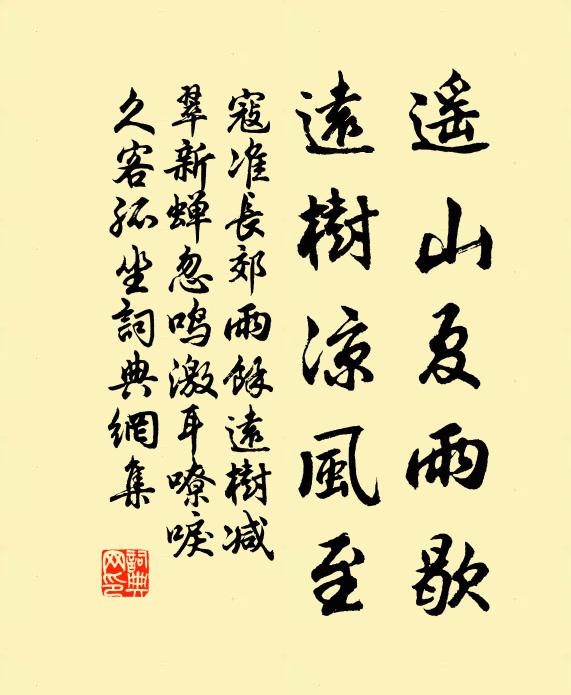 遥山夏雨歇
遠樹涼風至
寇准長郊雨餘遠樹减
翠新蝉忽鸣激耳嘹唳
久客孤坐詞典網集
詞典
网印